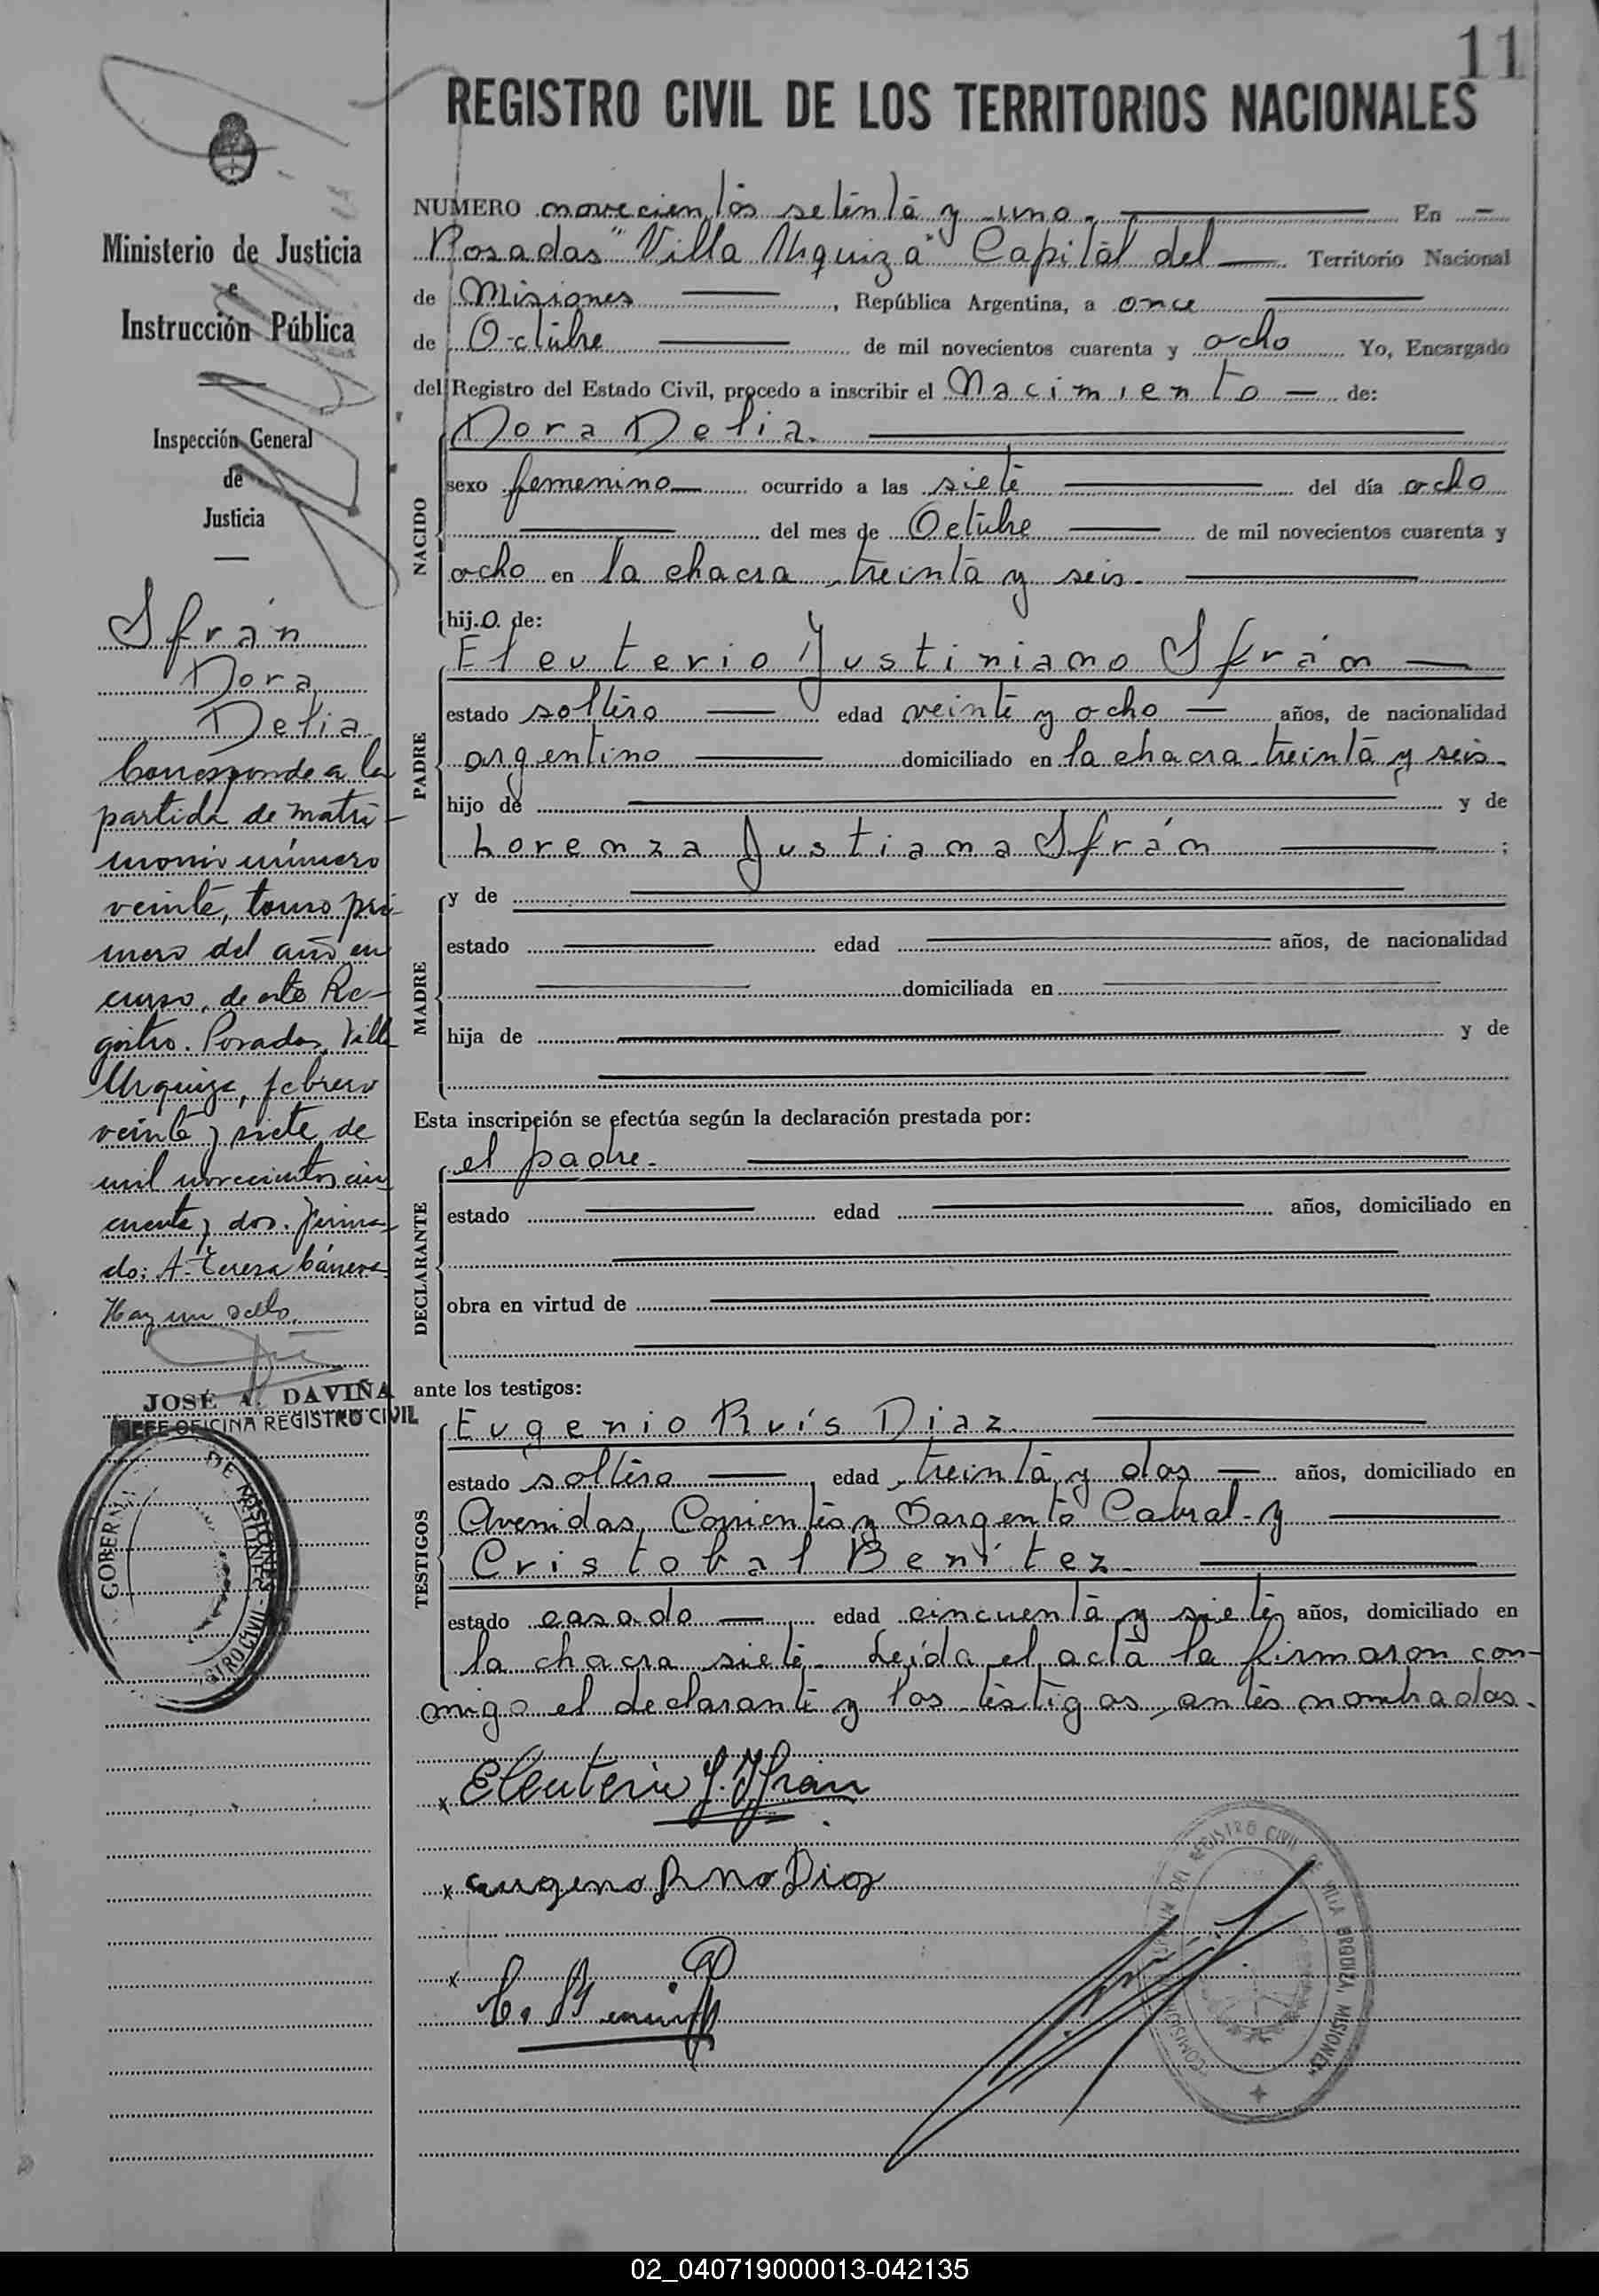 11
REGISTRO CIVIL DE LOS TERRITORIOS NACIONALES
Ministerio de Justicia
e
Instrucción Pública
Inspección General
de
Justicia
Ifrán
Dora
Delia
Corresponde a la
partida de matri-
monio número
veinte, tomo pri-
mero del año en
curso, de este Re-
gistro. Posadas, Villa
Urquiza, febrero
veinte y siete de
mil novecientos cin
cuenta y dos. Firma-
do: A. Teresa
Hay un sello.
JOSÉ A. DAVIÑA
JEFE OFICINA REGISTRO CIVIL
NUMERO novecientos setenta y uno. En
Posadas "Villa Urquiza" Capital del Territorio Nacional
de Misiones, República Argentina, a once
de Octubre de mil novecientos cuarenta y ocho Yo, Encargado
del Registro del Estado Civil, procedo a inscribir el Nacimiento de:
NACIDO
Dora Delia.
sexo femenino ocurrido a las siete del día ocho
del mes de Octubre de mil novecientos cuarenta y
ocho en la chacra treinta y seis.
hijo de:
PADRE
Eleuterio Justiniano Ifrán
estado soltero edad veinte y ocho años, de nacionalidad
argentino domiciliado en la chacra treinta y seis.
hijo de y de
Lorenza Justiana Ifrán ;
MADRE
y de
estado edad años, de nacionalidad
domiciliada en
hija de y de
Esta inscripción se efectúa según la declaración prestada por:
DECLARANTE
el padre.
estado edad años, domiciliado en
obra en virtud de
ante los testigos:
TESTIGOS
Eugenio Ruís Diaz.
estado soltero edad treinta y dos años, domiciliado en
Avenidas Corrientes y Sargento Cabral - y
Cristobal Benítez.
estado casado edad cincuenta y siete años, domiciliado en
la chacra siete. Leída el acta la firmaron con-
migo el declarante y los testigos antes nombrados.
Eleuterio J. Ifran
C. Benitez
02_040719000013-042135